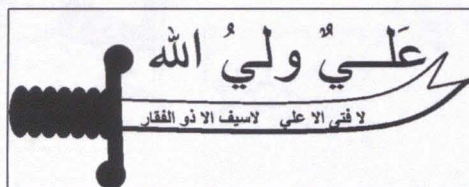 عَلـــيٌ ولـيُ الله
لا فتى الا علي لاسيف الا ذو الفقار